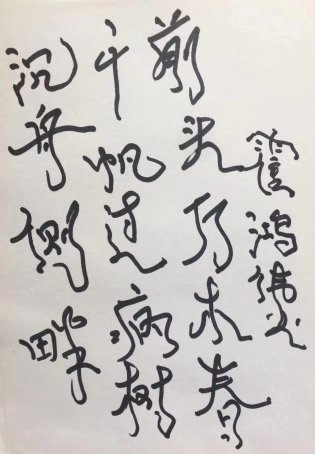 沉舟侧畔
千帆过病树
前头万木春
鸿伟书